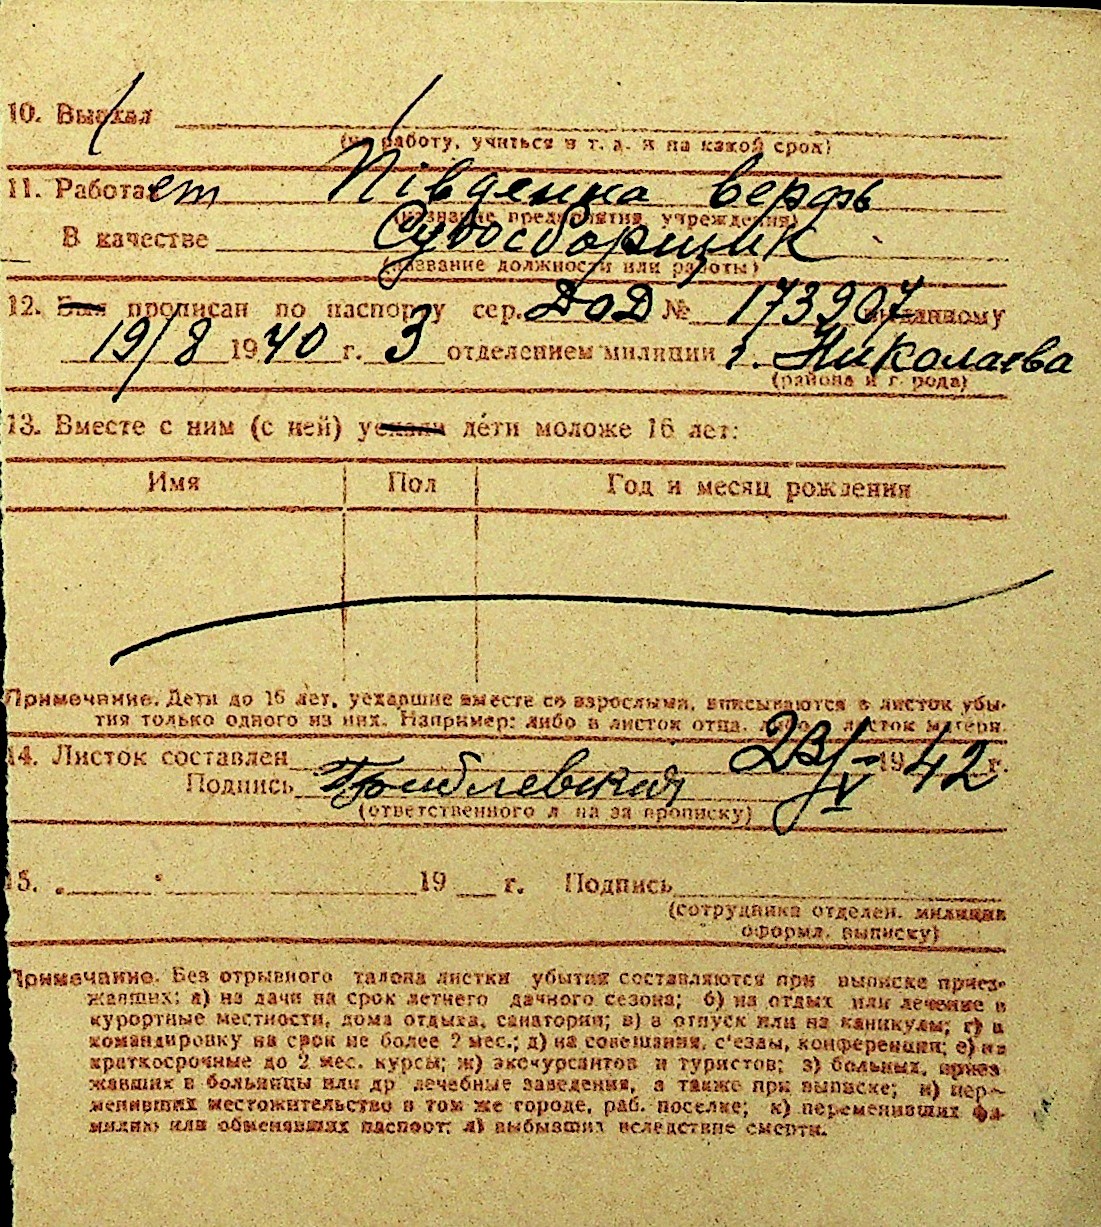 10. Выехал
(на работу, учиться и т. д. и на какой срок)
11. Работает Південна верфь
(название предприятия, учреждения)
В качестве Судосборщик
(название должности или работы)
12. Был прописан по паспорту сер. ДоД № 173907 выданному
19/8 1940 г. 3 отделением милиции г. Николаева
(района и города)
13. Вместе с ним (с ней) уехали дети моложе 16 лет:
Имя Пол Год и месяц рождения
Примечание. Дети до 16 лет, уехавшие вместе со взрослыми, вписываются в листок убы-
тия только одного из них. Например: либо в листок отца, либо в листок матери.
14. Листок составлен 23/V 1942 г.
Подпись
(ответственного лица за прописку)
15. 19 г. Подпись
(сотрудника отделен. милиции
оформл. выписку)
Примечание. Без отрывного талона листки убытия составляются при выписке приез-
жавших: а) на дачи на срок летнего дачного сезона; б) на отдых или лечение в
курортные местности, дома отдыха, санатории; в) в отпуск или на каникулы; г) в
командировку на срок не более 2 мес.; д) на совещания, с'езды, конференции; е) на
краткосрочные до 2 мес. курсы; ж) экскурсантов и туристов; з) больных, приез-
жавших в больницы или др лечебные заведения, а также при выписке; и) пер-
менивших местожительство в том же городе, раб. поселке; к) переменивших фа-
милию или обменявших паспорт; л) выбывших вследствие смерти.